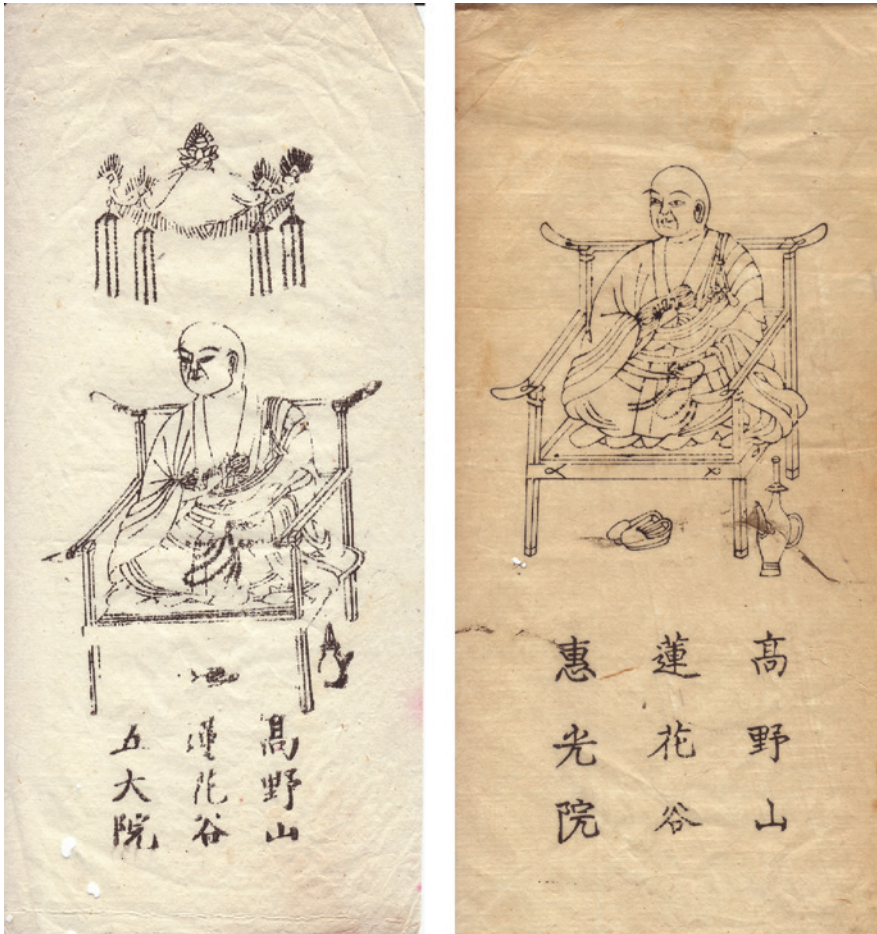 高野山
蓮花谷
五大院
高野山
蓮花谷
惠光院